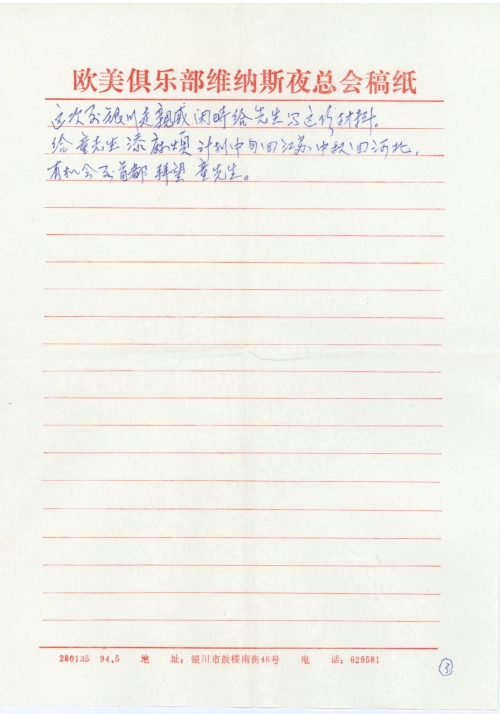 欧美俱乐部维纳斯夜总会稿纸
这次到银川走亲戚闲时给先生写这份材料。
给童先生添麻烦 计划中旬回江苏 中秋回河北,
有机会到首都 拜望 童先生。
280135 94.5 地 址: 银川市鼓楼南街46号 电 话: 629581
3